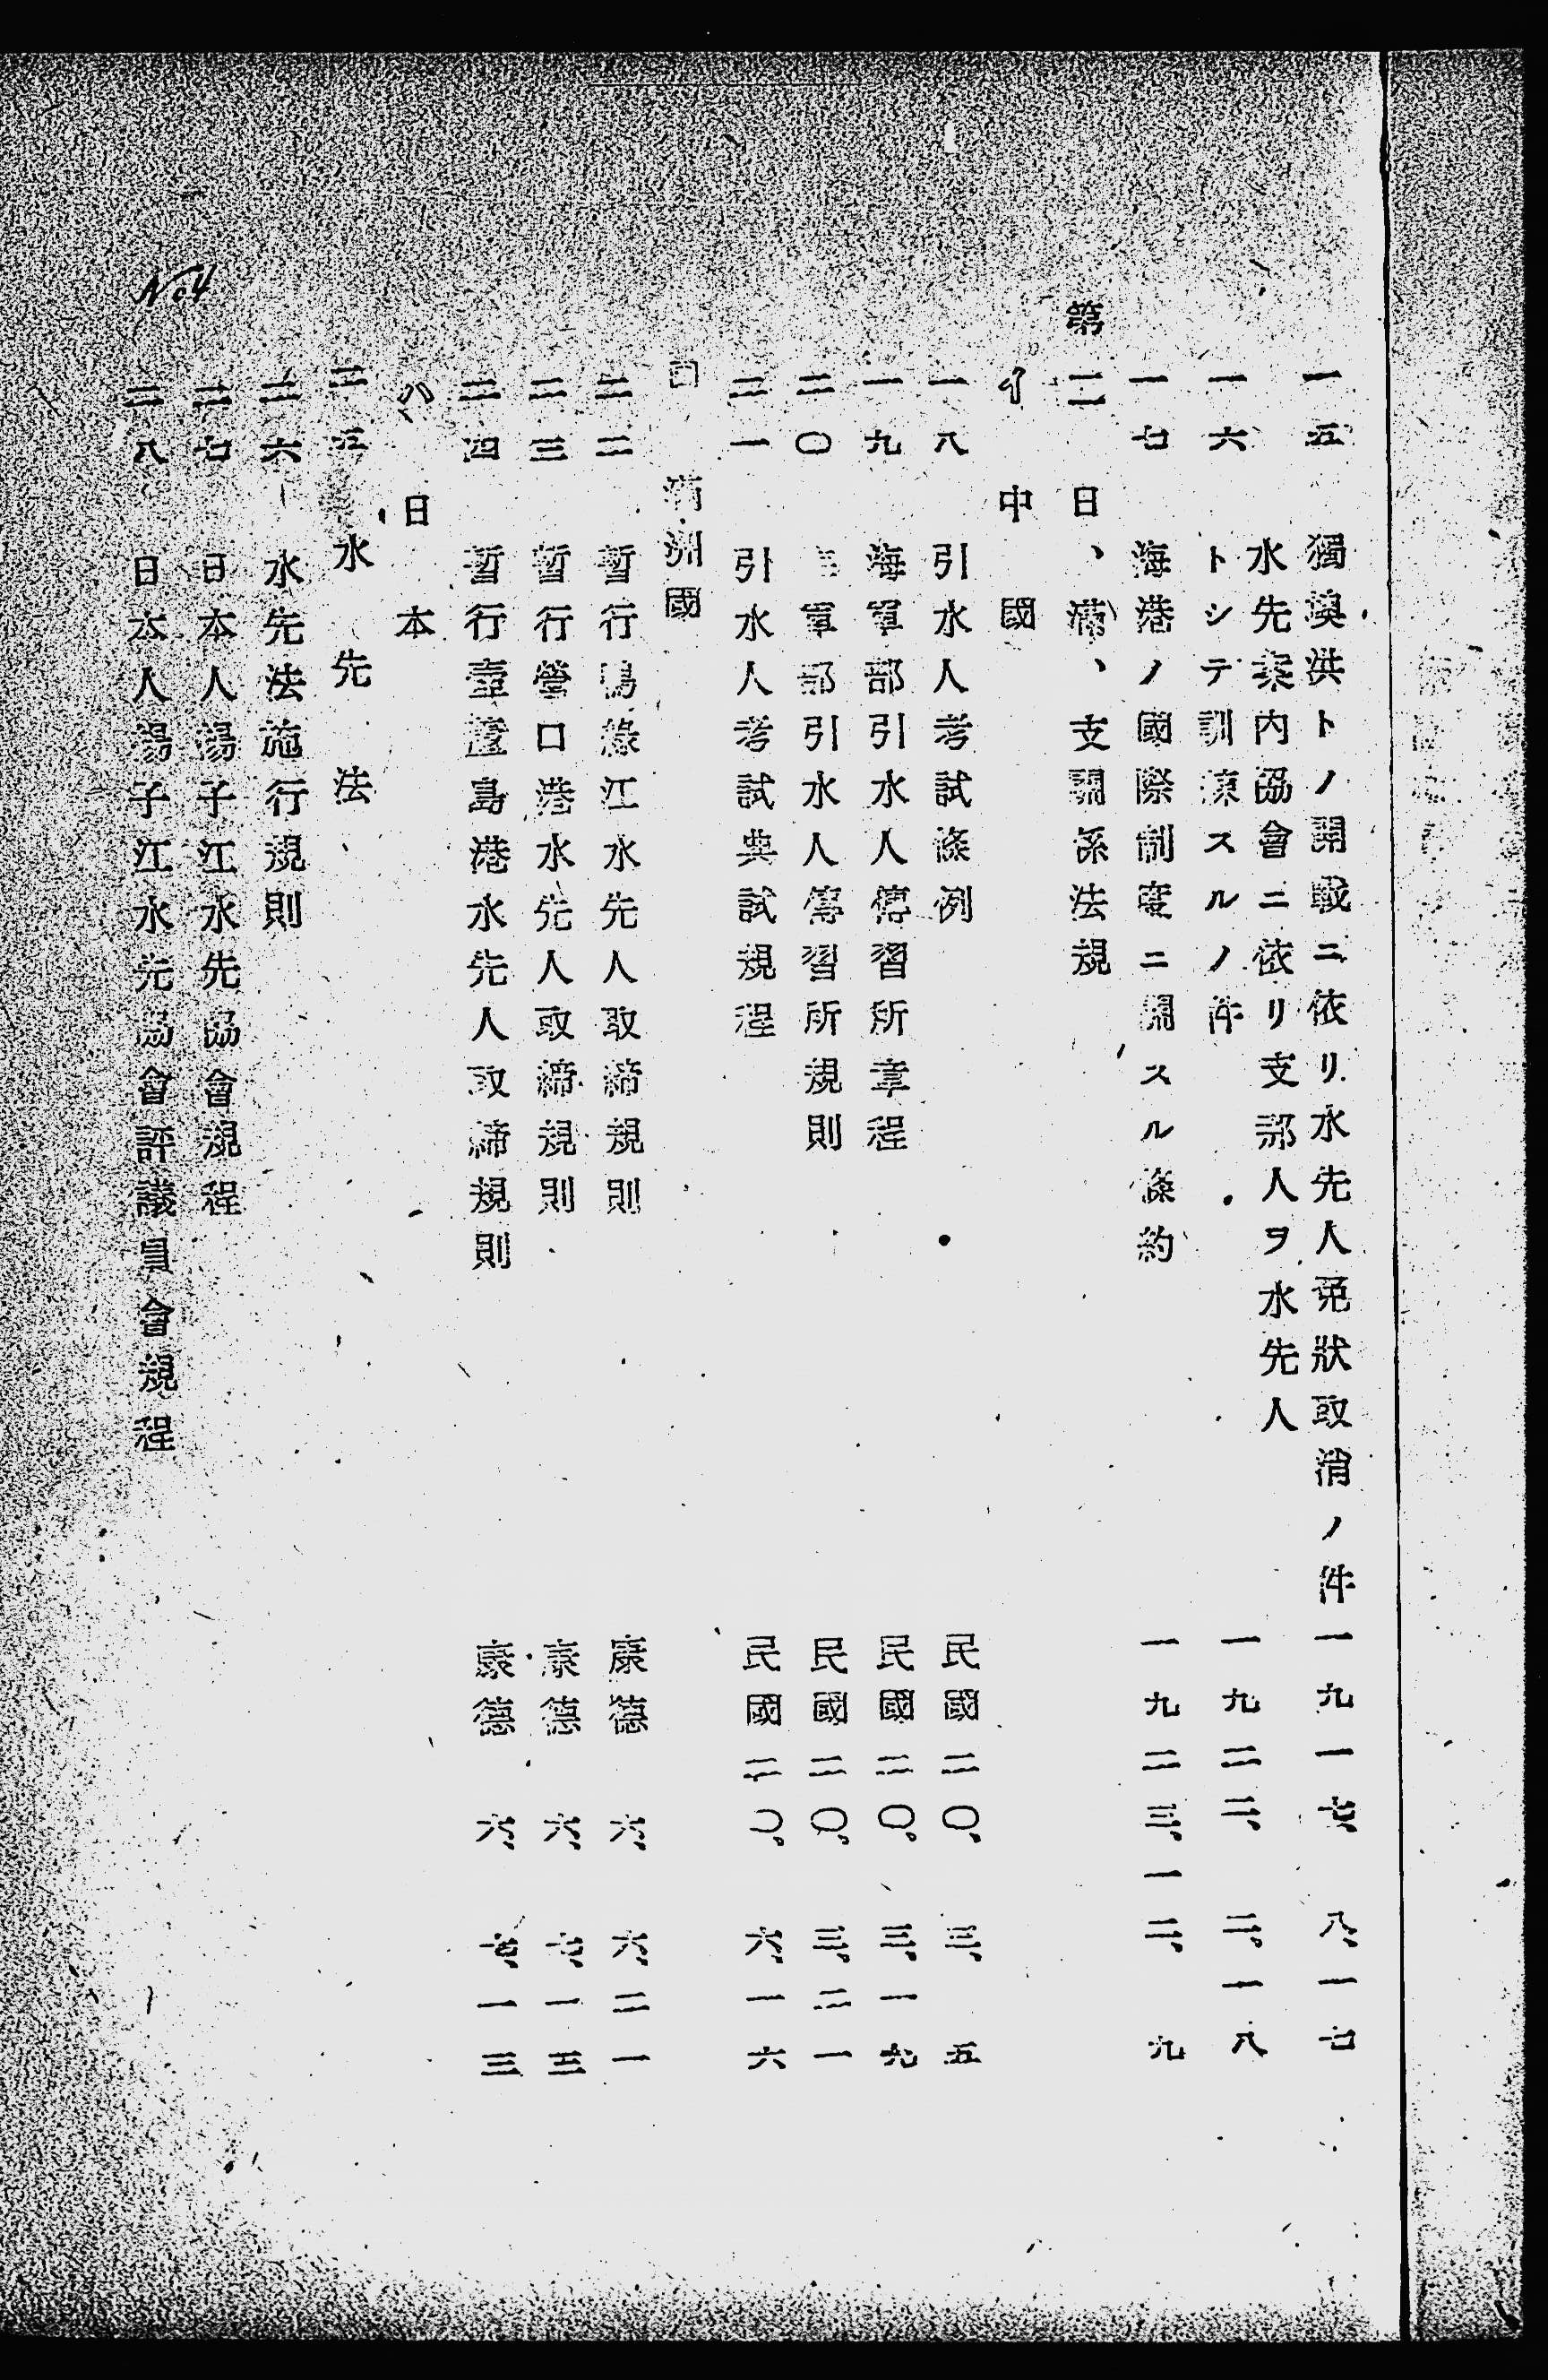 一五 獨澳洪トノ開戰ニ依リ水先人免狀取消ノ件 一九一七、八、一七
一六 水先案内協會ニ依リ支那人ヲ水先人
トシテ訓練スルノ件 一九二二、二、一八
一七 海港ノ國際制度ニ關スル條約 一九二三、一二、九
第二 日、滿、支關係法規
イ 中國
一八 引水人考試條例 民國二〇、三、五
一九 海軍部引水人傳習所章程 民國二〇、三、一九
二〇 軍部引水人傳習所規則 民國二〇、三、二一
二一 引水人考試典試規程 民國二〇、六、一六
ロ 滿洲國
二二 暫行鴨綠江水先人取締規則 康德六、六、二一
二三 暫行營口港水先人取締規則 康德六、七、一三
二四 暫行壺蘆島港水先人取締規則 康德六、七、一三
ハ 日本
二五 水先法
二六 水先法施行規則
二七 日本人揚子江水先協會規程
二八 日本人揚子江水先協會評議員會規程
No4